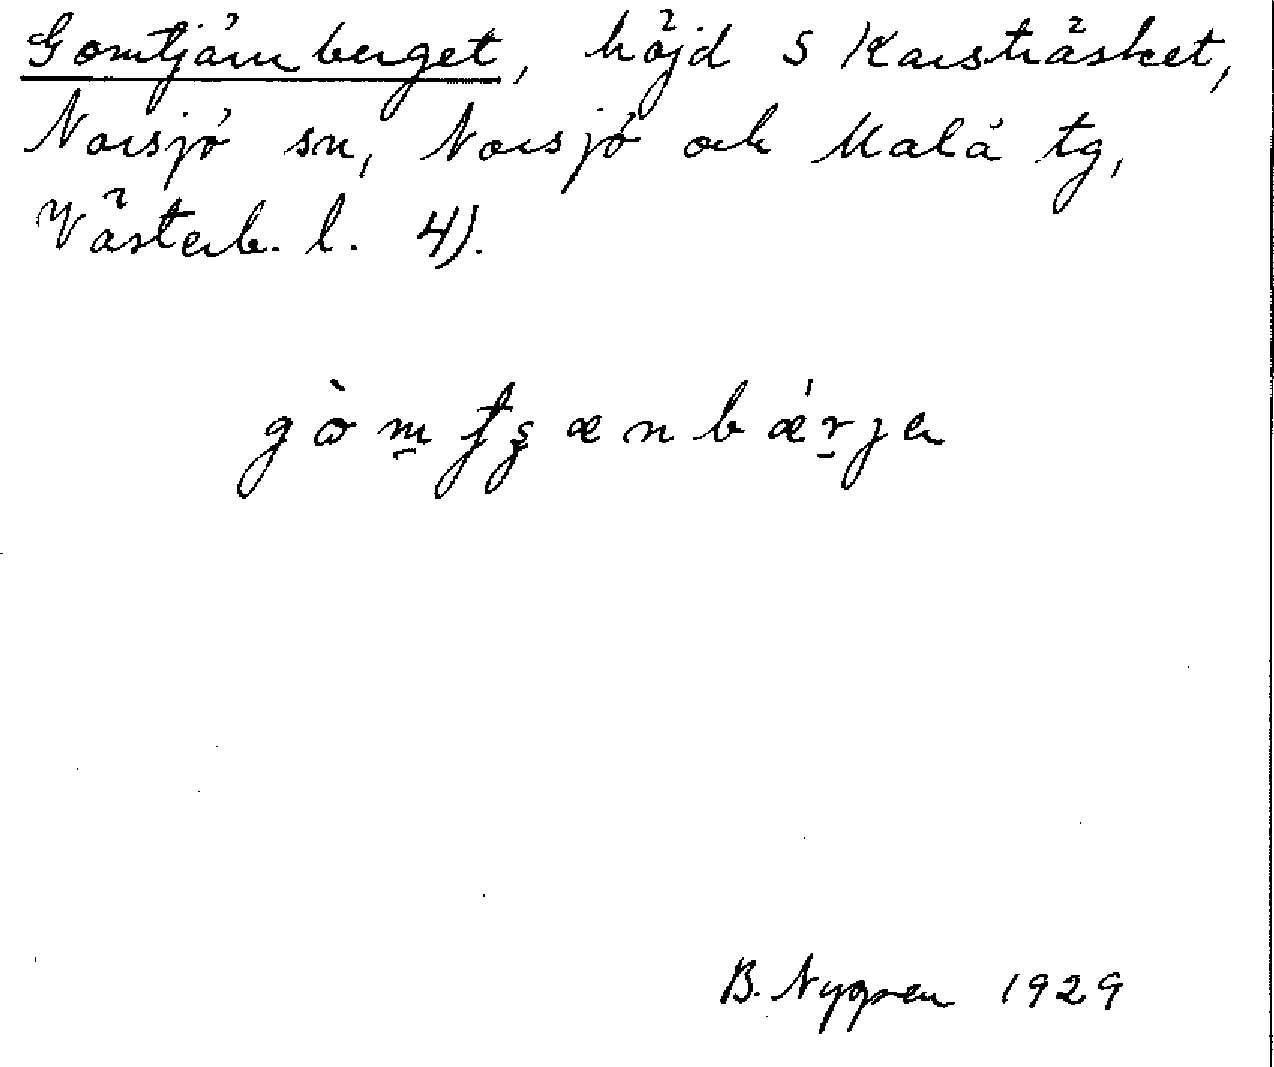 Gomtjärnberget, höjd S Karsträsket,
Norsjö sn, Norsjö och Malå tg,
Västerb. l. 4).
B. Nygren 1929